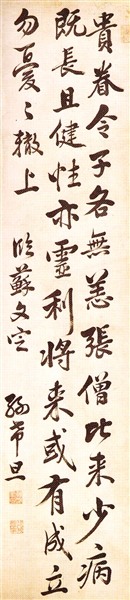 貴眷令子各無恙張僧比来少病
既長且健性亦靈利將来或有成立
勿憂〻轍上 臨蘇文定 孫希旦